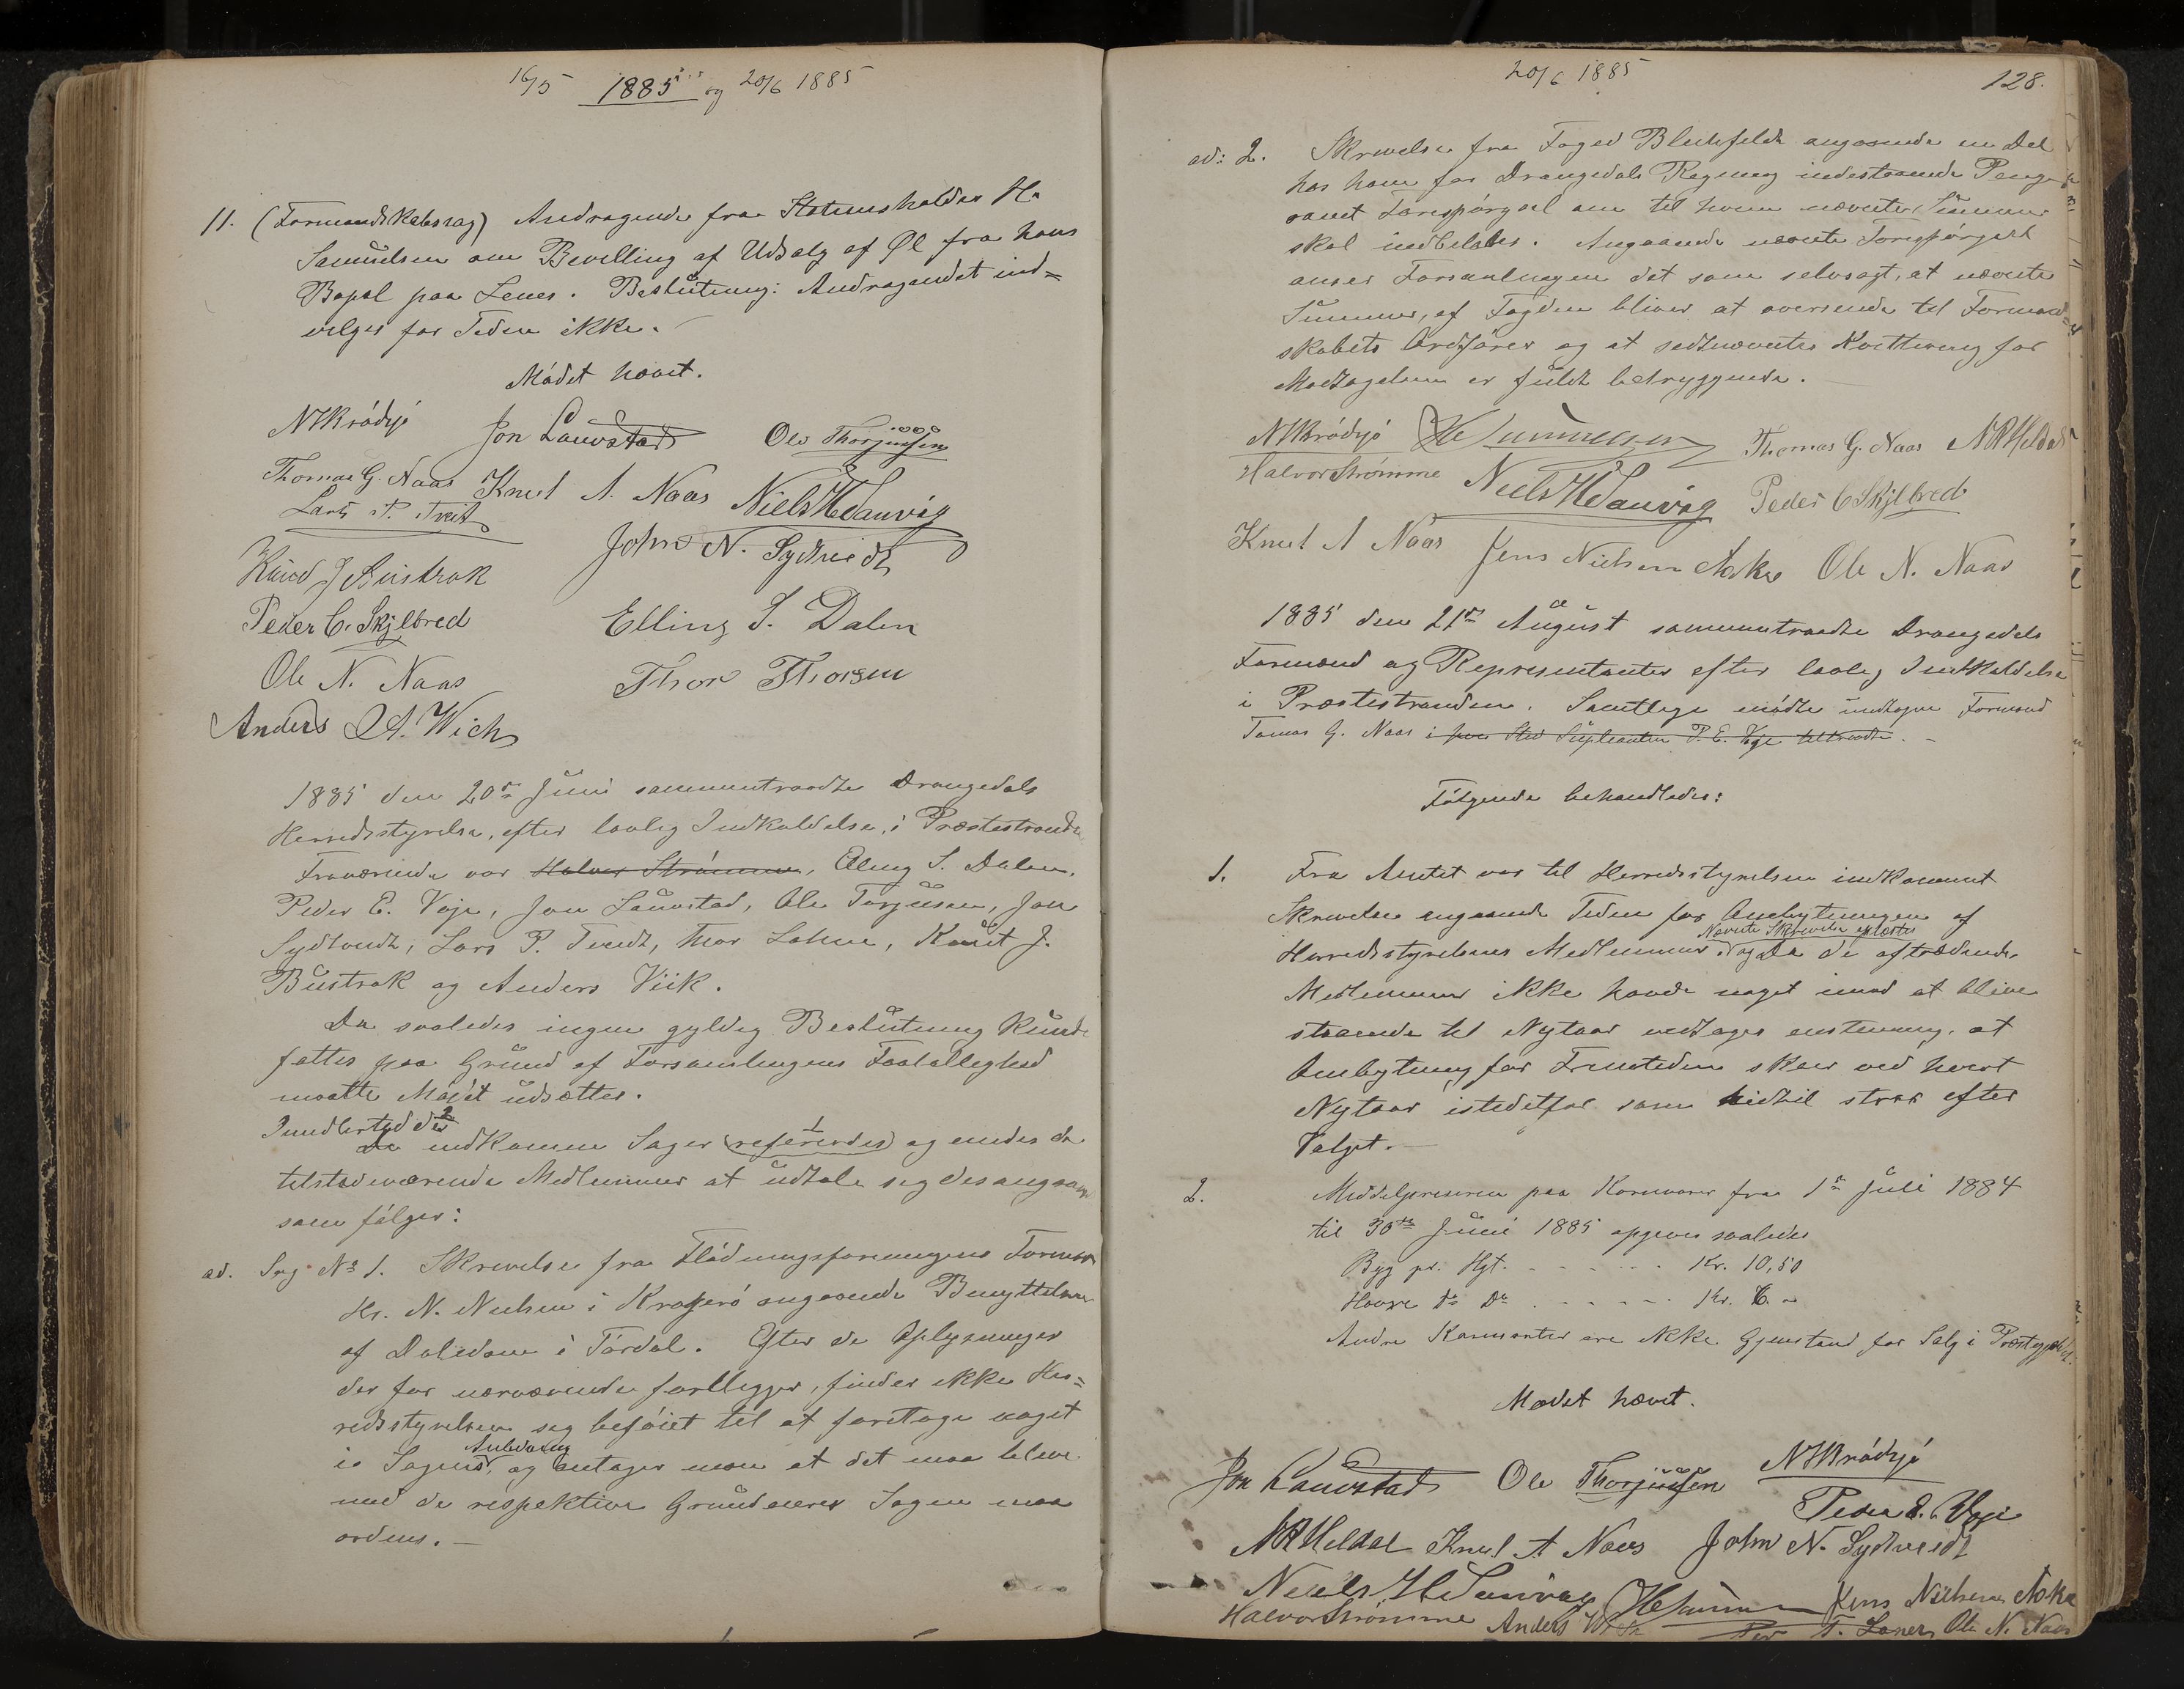 16/5 1885 og 20/6 1885
11. (Formandskabssag) Andragende fra Stationsholder H.
Samuelsen om Bevilling af Udsalg af Øl fra hans
Bopæl paa Lenes. Beslutning: Andragendet ind=
vilges for Tiden ikke.
Mödet hævet.
NHKródsjö Jon Lauvstad Ole Thorjussen
Thomas G. Naas Knut A. Naas Niels H Sanvig
Lars P. Tveit
John N. Sydtvedt
Knud J Bustrak
Peder C. Skjelbred Elling S. Dalen
Ole N. Naas Thor Thorsen
Anders A. Wich
1885 den 20de Juni sammentraadte Drangedals
Herredsstyrelse, efter lovlig Indkaldelse, i Præstestranden
Fraværende var Halvor Strömme, Elling S. Dalen,
Peder E. Voje, Jon Lauvstad, Ole Torjusen, Jon
Sydtvedt, Lars P. Tvedt, Thor Lohne, Knut J.
Bustrak og Anders Viik.
Da saaledes ingen gyldig Beslutning kunde
fattes paa Grund af Forsamlingens Faatallighed
maatte Mödet udsættes.
Imidlertid de 2
De indkomne Sager (refereredes) 1 og enedes de
tilstedeværende Medlemmer at udtale sig desangaaende
som fölger:
ad. Sag No 1. Skrivelse fra Flödningsforeningens Formand
Hr. N. Nielsen i Kragerö angaaende Benyttelsen
af Dalsdam i Tördal. Efter de Oplysninger
der for nærværende forligger, finder ikke Her=
redsstyrelsen sig beföiet til at foretage noget
i Sagens Anledning, og antager man at det maa blive
med de respektive Grundeiere Sagen maa
ordens.—
20/6 1885
128.
ad: 2. Skrivelse fra Foged Blechfeldt angaaende en Del
hos ham for Drangedals Regning indestaaende Penge
samt Forespörgsel om til hvem nævnte Summer
skal indbetales. Angaaende nævnte Forespörgsel
anser Forsamlingen det som selvsagt, at nævnte
Summer, af Fogden bliver at oversende til Formand=
skabets Ordförer og at sidstnævntes Kvittering for
Modtagelsen er fuldt betryggende.
NHKródsjö Thomas G. Naas NRHeldal
Halvor Strømme Niels H Sanvig Peder C Skjelbred
Knut A Naas Jens Nielsen Aske Ole N. Naas
1885 den 21de August sammentraadte Drangedals
Formænd og Representanter efter lovlig Indkaldelse
i Præstestranden. Samtlige mödte undtagen Formand
Tomas G. Naas i hvis Sted Supleanten P. E. Voje tiltraadte.—
Fölgende behandledes:
1. Fra Amtet var til Herredsstyrelsen indkommet
Skrivelse angaaende Tiden for Ombytningen af
Nævnte Skrivelse oplæstes
Herredsstyrelsens Medlemmer. og Da de aftrædende
Medlemmer ikke havde noget imod at blive
staaende til Nytaar vedtages enstemmig, at
Ombytning for Fremtiden sker ved hvert
Nytaar istedetfor som hidtil strax efter
Valget.—
2. Middelprisene paa Kornvarer fra 1ste Juli 1884
til 30te Juni 1885 opgives saaledes
Byg pr. Hgt. - - - - - - Kr. 10,50
Havre do Do - - - - - Kr. 6.—
Andre Kornsorter ere ikke Gjenstand for Salg i Præstegjeldet.
Mødet hævet.
Jon Lauvstad Ole Thorjussen NHKródsjö
Peder E. Voje
NRHeldal Knut A Naas John N. Sydtvedt
Niels H Sanvig Jens Nielsen Aske
Halvor Strømme Anders Ole N. Naas